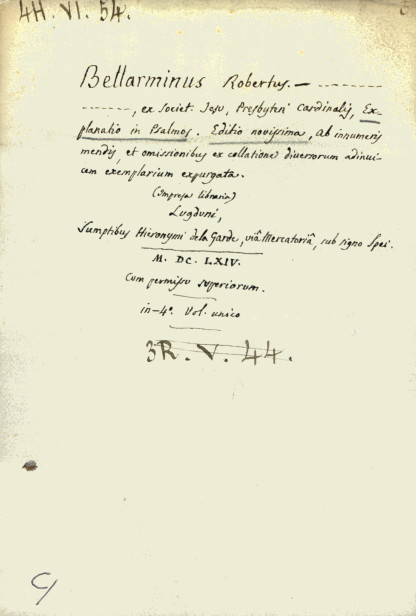 4H. VI. 54.
Bellarminus Robertus. — - - - - - -
- - - - - - -, ex Societ. Jesu, Presbyteri Cardinalis, Ex-
planatio in Psalmos. Editio novissima, ab innumeris
mendis, et omissionibus ex collatione diversorum adinui-
cem exemplarium expurgata.
(Impresa libraria)
Lugduni,
Sumptibus Hieronymi de la Garde, viâ Mercatoriâ, sub signo Spei.
M. DC. LXIV.
Cum permissu superiorum.
in-4º. Vol. unico
3R. V. 44.